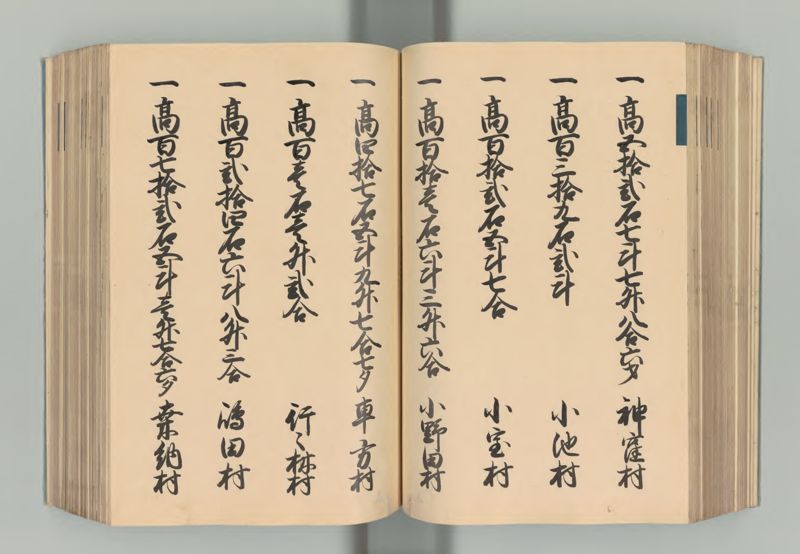 一高五拾弐石七斗七升八合六夕 神窪村
一高百三拾九石弐斗 小池村
一高百拾弐石五斗七合 小室村
一高百拾壱石六斗三升六合 小野田村
一高四拾七石五斗九升七合七夕 車方村
一高百壱石壱升弐合 行々林村
一高百弐拾四石六斗八升三合 嶋田村
一高百七拾弐石五斗壱升七合六夕 桑納村